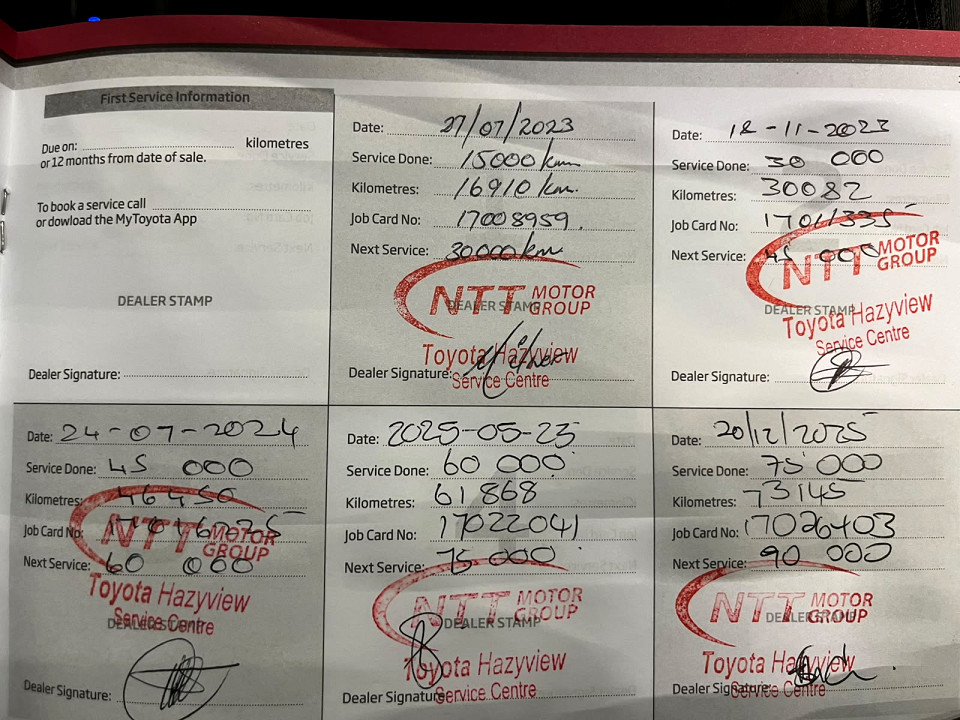 First Service Information
Due on: kilometres
or 12 months from date of sale.
To book a service call
or dowload the MyToyota App
DEALER STAMP
Dealer Signature:
Date: 27/07/2023
Service Done: 15000 km
Kilometres: 16910 km.
Job Card No: 17008959.
Next Service: 30000 km
NTT MOTOR
GROUP
DEALER STAMP
Toyota Hazyview
Service Centre
Dealer Signature:
Date: 18-11-2023
Service Done: 30 000
Kilometres: 30082
Job Card No: 17011335
Next Service: 45 000
NTT MOTOR
GROUP
DEALER STAMP
Toyota Hazyview
Service Centre
Dealer Signature:
Date: 24-07-2024
Service Done: 45 000
Kilometres: 46450
Job Card No:
Next Service: 60 000
NTT MOTOR
GROUP
Toyota Hazyview
Service Centre
DEALER STAMP
Dealer Signature:
Date: 2025-05-23
Service Done: 60 000
Kilometres: 61868
Job Card No: 17022041
Next Service: 75 000
NTT MOTOR
GROUP
DEALER STAMP
Toyota Hazyview
Service Centre
Dealer Signature:
Date: 20/12/2025
Service Done: 75 000
Kilometres: 73145
Job Card No: 17026403
Next Service: 90 000
NTT MOTOR
GROUP
DEALER STAMP
Toyota Hazyview
Service Centre
Dealer Signature: